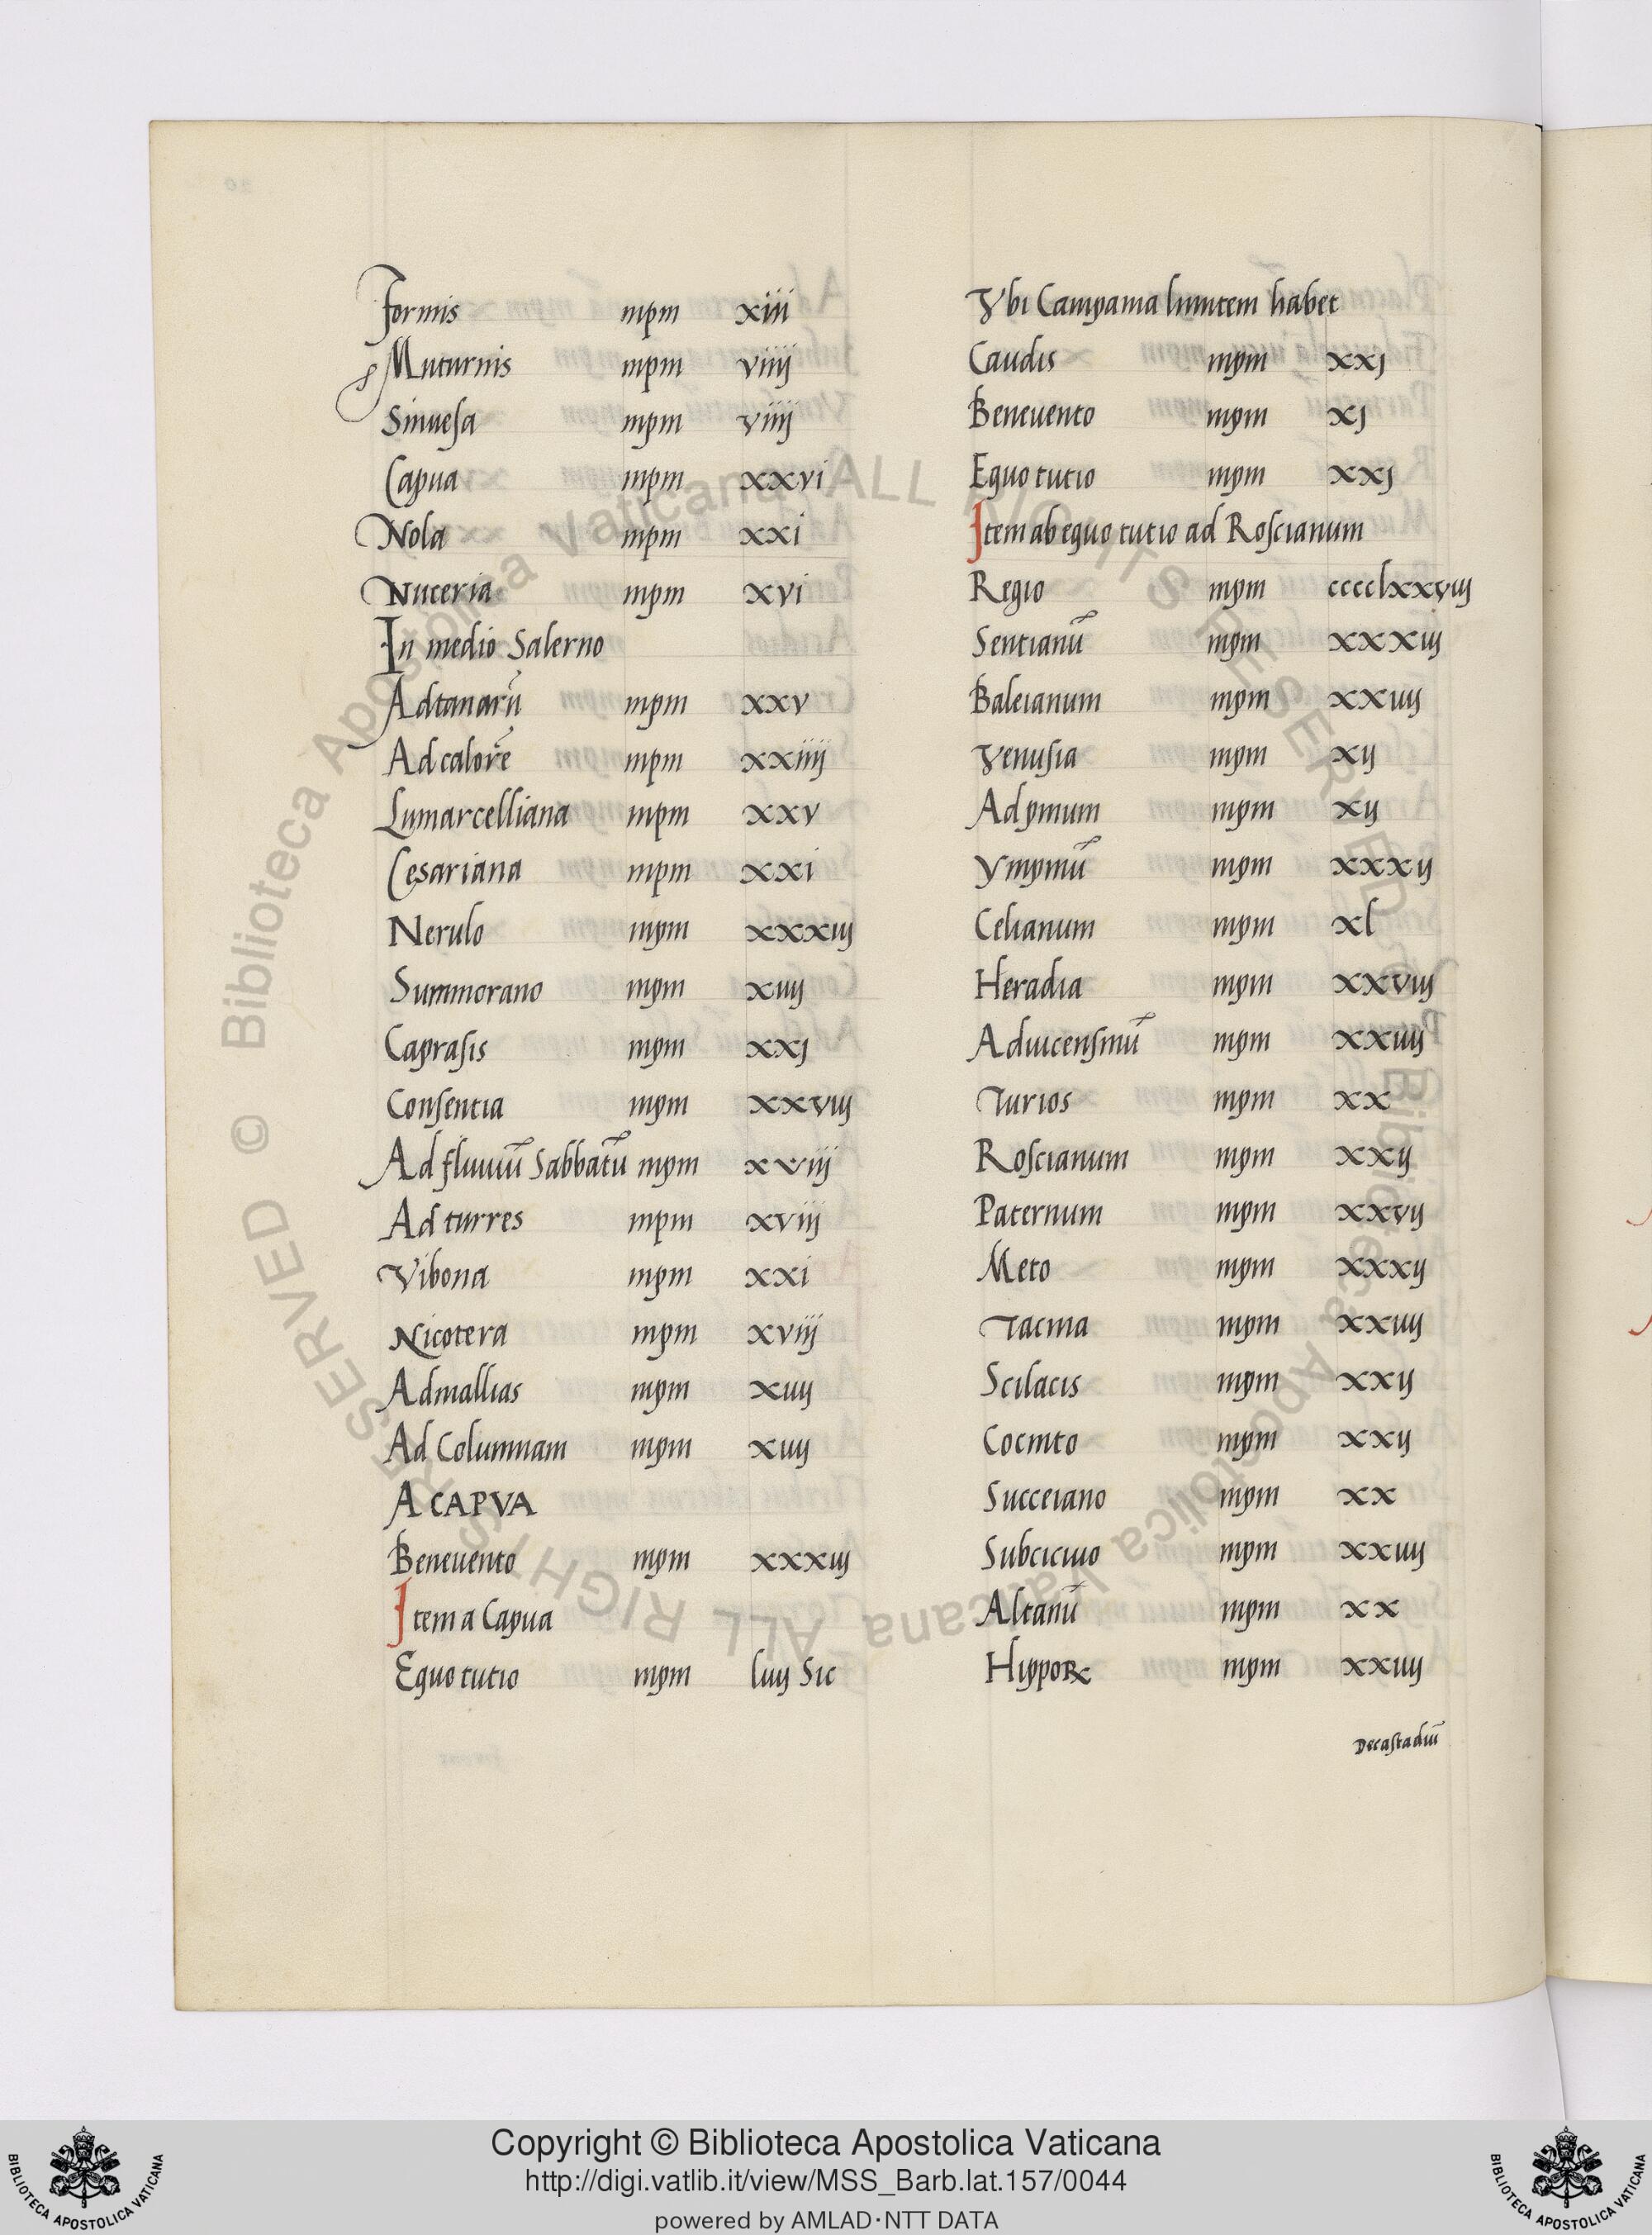 Formis mpm xiii
Muturnis mpm viiij
Sinuesa mpm viiij
Capua mpm xxvi
Nola mpm xxi
Nuceria mpm xvi
In medio Salerno
Adtanarū mpm xxv
Ad calorē mpm xxiiij
Lumarcelliana mpm xxv
Cesariana mpm xxi
Nerulo mpm xxxiij
Summorano mpm xiiij
Caprasis mpm xxj
Consentia mpm xxviij
Ad fluuiū Sabbatū mpm xviij
Ad turres mpm xviij
Vibona mpm xxi
Nicotera mpm xviij
Admallias mpm xiiij
Ad Columnam mpm xiiij
A CAPVA
Beneuento mpm xxxiij
Item a Capua
Equo tutio mpm liiij Sic
Vbi Campania limitem habet
Caudis mpm xxj
Beneuento mpm xj
Equo tutio mpm xxj
Item ab equo tutio ad Roscianum
Regio mpm cccclxxviij
Sentianū mpm xxxiij
Baleianum mpm xxiiij
Venusia mpm xij
Adpinum mpm xij
Ympinū mpm xxxij
Celianum mpm xl
Heradia mpm xxviij
Aduicensimū mpm xxiiij
Turios mpm xx
Roscianum mpm xxij
Paternum mpm xxvij
Meto mpm xxxij
Tacina mpm xxiiij
Scilacis mpm xxij
Cocinto mpm xxij
Succeiano mpm xx
Subciciuio mpm xxiiij
Altanū mpm xx
Hippoꝝ mpm xxiiij
Decastadiū
Copyright © Biblioteca Apostolica Vaticana
http://digi.vatlib.it/view/MSS_Barb.lat.157/0044
powered by AMLAD·NTT DATA
BIBLIOTECA APOSTOLICA VATICANA
BIBLIOTECA APOSTOLICA VATICANA
© Biblioteca Apostolica Vaticana ALL RIGHTS RESERVED
© Biblioteca Apostolica Vaticana ALL RIGHTS RESERVED